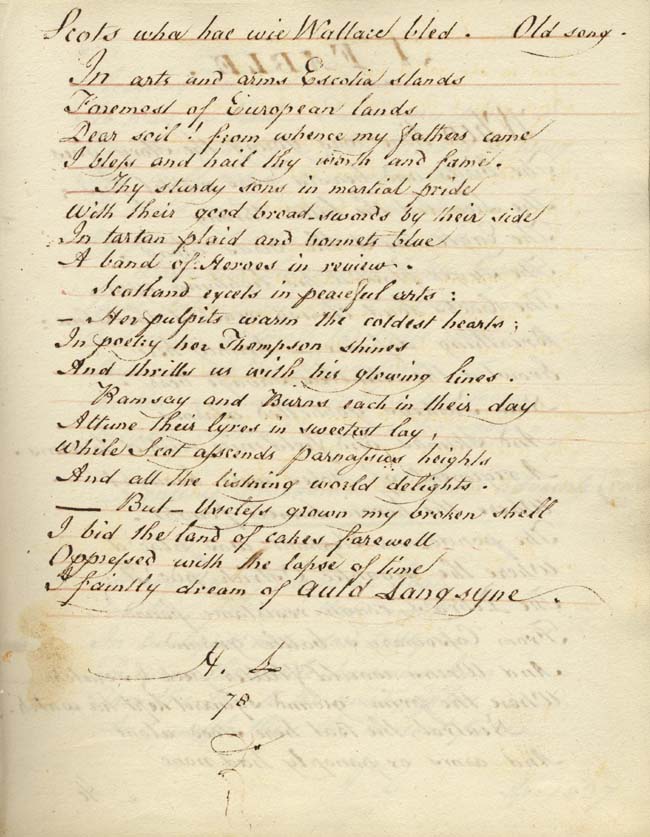 Scots wha hae wie Wallace bled. Old song.
In arts and arms Escotia stands
Foremost of European lands
Dear soil! from whence my fathers came
I bless and hail thy worth and fame.
Thy sturdy sons in martial pride
With their good broad-swords by their side
In tartan plaid and bonnets blue
A band of Heroes in review.
Scotland excels in peaceful arts:
— Her pulpits warm the coldest hearts;
In poetry her Thompson shines
And thrills us with his glowing lines.
Ramsay and Burns each in their day
Attune their lyres in sweetest lay,
While Scot ascends parnassus heights
And all the listning world delights.
— But — Useless grown my broken shell
I bid the land of cakes farewell
Oppressed with the lapse of time
I faintly dream of Auld Lang syne.
H. L
78